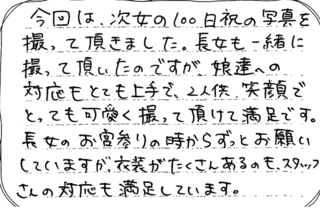 今回は、次女の100日祝の写真を
撮って頂きました。長女も一緒に
撮って頂いたのですが、娘達への
対応もとても上手で、2人供、笑顔で
とっても可愛く撮って頂けて満足です。
長女のお宮参りの時からずっとお願い
していますが、衣装がたくさんあるのも、スタッフ
さんの対応も満足しています。